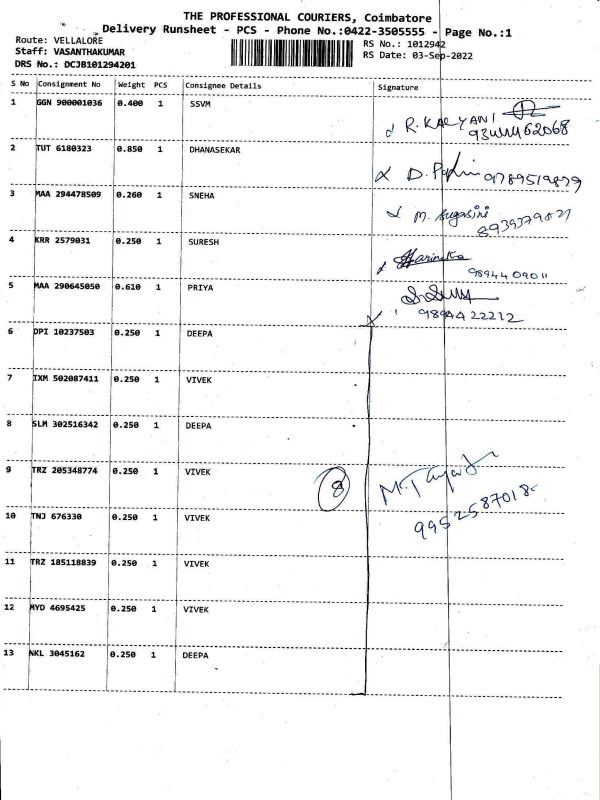 THE PROFESSIONAL COURIERS, Coimbatore
Delivery Runsheet - PCS - Phone No.:0422-3505555 - Page No.:1
Route: VELLALORE
Staff: VASANTHAKUMAR
DRS No.: DCJB101294201
RS No.: 1012942
RS Date: 03-Sep-2022
S No Consignment No Weight PCS Consignee Details Signature
1 GGN 900001036 0.400 1 SSVM
R. KALYANI
2 TUT 6180323 0.850 1 DHANASEKAR
D.
3 MAA 294478509 0.260 1 SNEHA
M. Sugasini
4 KRR 2579031 0.250 1 SURESH
9894409011
5 MAA 290645050 0.610 1 PRIYA
9894422212
6 DPI 10237503 0.250 1 DEEPA
7 IXM 502087411 0.250 1 VIVEK
8 SLM 302516342 0.250 1 DEEPA
9 TRZ 205348774 0.250 1 VIVEK
8
10 TNJ 676330 0.250 1 VIVEK
9952587018
11 TRZ 185118839 0.250 1 VIVEK
12 MYD 4695425 0.250 1 VIVEK
13 NKL 3045162 0.250 1 DEEPA